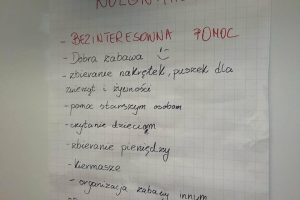 - BEZINTERESOWNA POMOC
- Dobra zabawa
- zbieranie nakrętek, puszek dla
zwierząt i żywności
- pomoc starszym osobom
- czytanie dzieciom
- zbieranie pieniędzy
- kiermasze
- organizacja zabawy innym